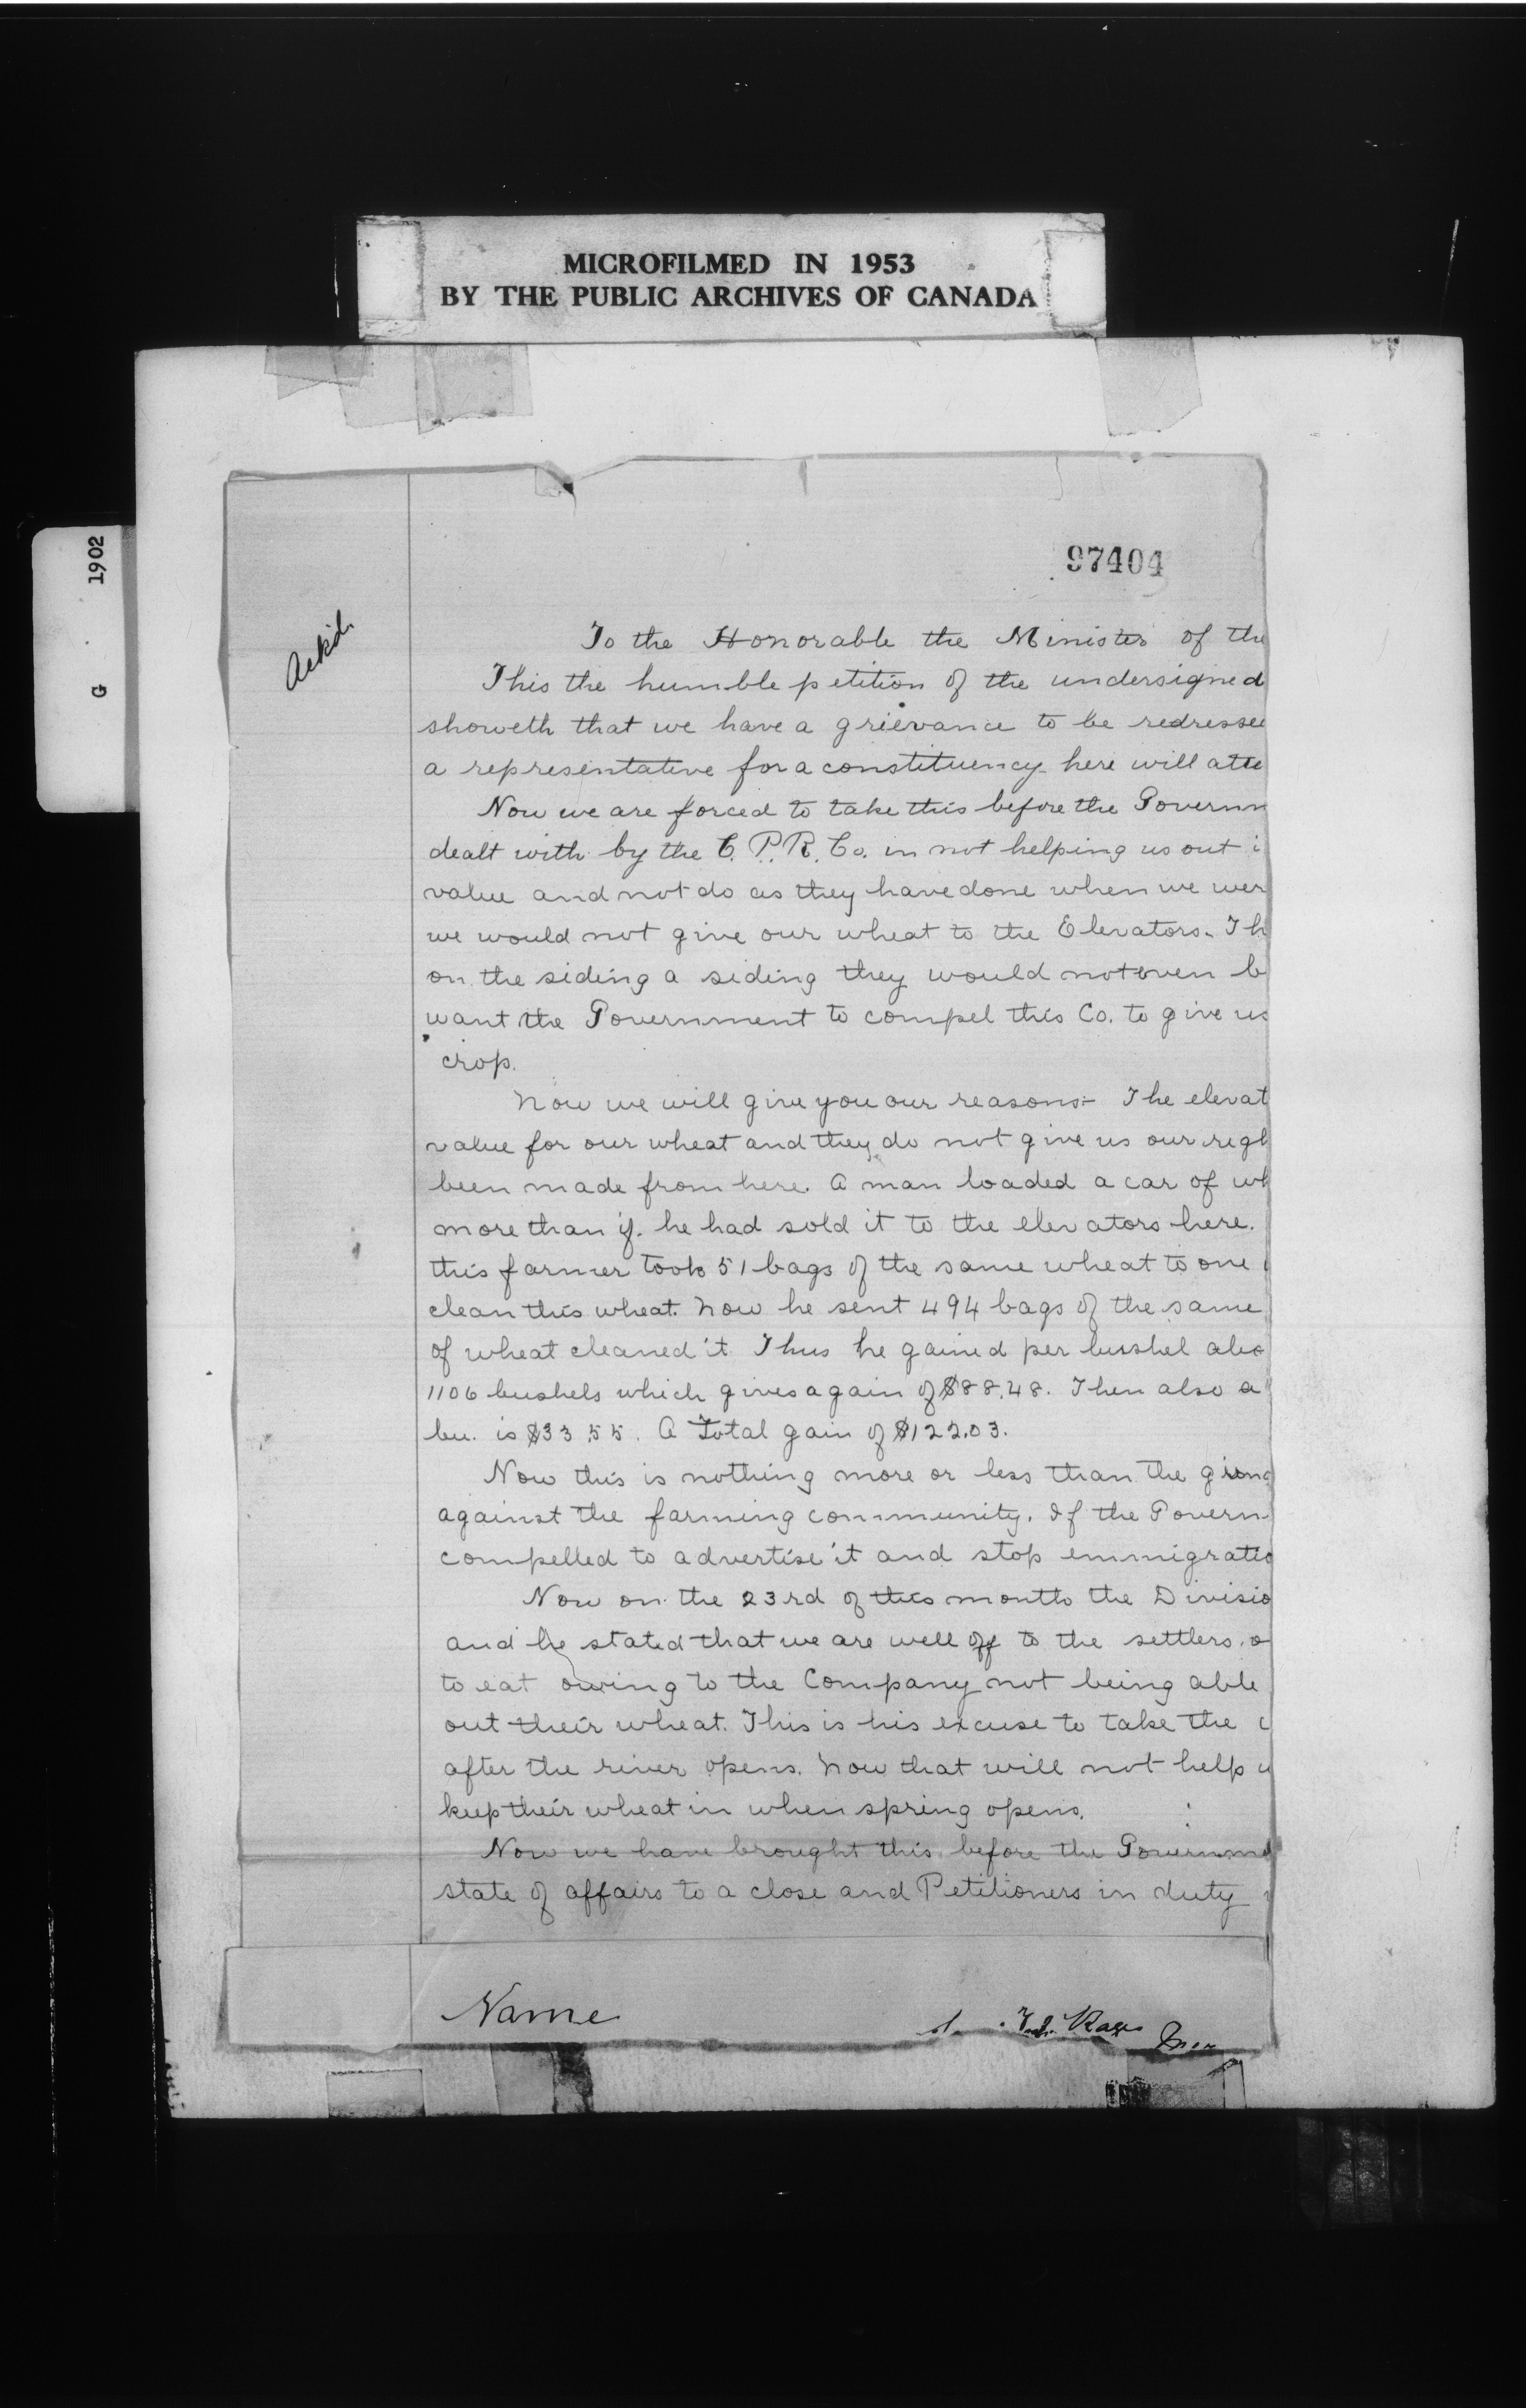 MICROFILMED IN 1953
BY THE PUBLIC ARCHIVES OF CANADA
G 1902
97404
Ackd.
To the Honorable the Minister of the
This the humble petition of the undersigned
showeth that we have a grievance to be redressed
a representative for a constituency here will atte
Now we are forced to take this before the Governm
dealt with by the C. P. R. Co. in not helping us out i
value and not do as they have done when we wer
we would not give our wheat to the Elevators. Th
on the siding a siding they would not even b
want the Government to compel this Co. to give us
crop.
Now we will give you our reasons:- The elevat
value for our wheat and they do not give us our righ
been made from here. A man loaded a car of wh
more than if he had sold it to the elevators here.
this farmer took 51 bags of the same wheat to one
clean this wheat. Now he sent 494 bags of the same
of wheat cleaned it Thus he gained per bushel
1106 bushels which gives a gain of $88.48. Then also a
bu. is $33.55. A Total gain of $122.03.
Now this is nothing more or less than the
against the farming community. If the Govern
compelled to advertise it and stop emmigratio
Now on the 23rd of this month the Divisio
and he stated that we are well off to the settlers. o
to eat owing to the Company not being able
out their wheat. This is his excuse to take the c
after the river opens. Now that will not help u
keep their wheat in when spring opens.
Now we have brought this before the Governme
state of affairs to a close and Petitioners in duty
Name